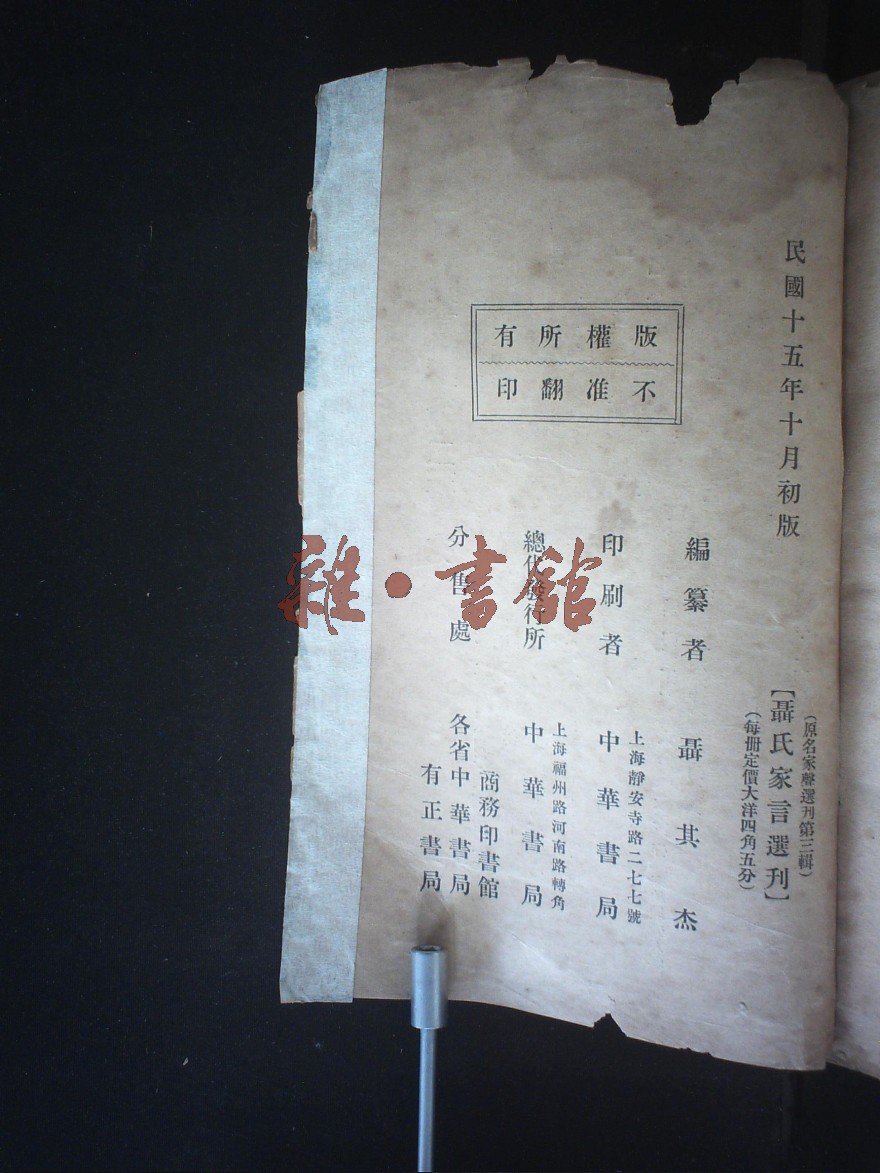 民國十五年十月初版
（原名家聲選刊第三輯）
【聶氏家言選刊】
（每冊定價大洋四角五分）
版權所有
不准翻印
編纂者　聶其杰
上海靜安寺路二七七號
印刷者　中華書局
上海福州路河南路轉角
總代發行所　中華書局
商務印書館
分售處　各省中華書局
有正書局
雜·書館